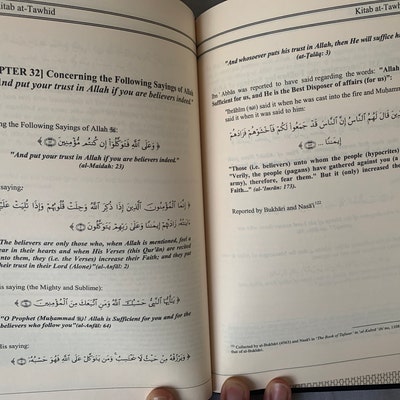 Kitab at-Tawhid
PTER 32] Concerning the Following Sayings of Allah
nd put your trust in Allah if you are believers indeed."
ng the Following Sayings of Allah ﷻ:
﴿وَعَلَى ٱللَّهِ فَتَوَكَّلُوٓا۟ إِن كُنتُم مُّؤْمِنِينَ﴾
"And put your trust in Allah if you are believers indeed."
(al-Maidah: 23)
saying:
﴿إِنَّمَا ٱلْمُؤْمِنُونَ ٱلَّذِينَ إِذَا ذُكِرَ ٱللَّهُ وَجِلَتْ قُلُوبُهُمْ وَإِذَا تُلِيَتْ عَلَيْ
زَادَتْهُمْ إِيمَٰنًا وَعَلَىٰ رَبِّهِمْ يَتَوَكَّلُونَ﴾
he believers are only those who, when Allah is mentioned, feel a
ear in their hearts and when His Verses (this Qur'ân) are recited
unto them, they (i.e. the Verses) increase their Faith; and they put
their trust in their Lord (Alone)" (al-Anfâl: 2)
is saying (the Mighty and Sublime):
﴿يَٰٓأَيُّهَا ٱلنَّبِىُّ حَسْبُكَ ٱللَّهُ وَمَنِ ٱتَّبَعَكَ مِنَ ٱلْمُؤْمِنِينَ﴾
"O Prophet (Muḥammad ﷺ)! Allah is Sufficient for you and for the
believers who follow you" (al-Anfâl: 64)
His saying:
﴿وَيَرْزُقْهُ مِنْ حَيْثُ لَا يَحْتَسِبُ وَمَن يَتَوَكَّلْ عَلَى ٱللَّهِ فَهُوَ حَسْبُهُ﴾
Kitab at-Tawhid
"And whosoever puts his trust in Allah, then He will suffice h
(at-Ṭalâq: 3)
Ibn 'Abbâs was reported to have said regarding the words: "Allah
Sufficient for us, and He is the Best Disposer of affairs (for us)":
"Ibrâhîm said it when he was cast into the fire and Muḥam
said it when it was said to him:
قَالَ لَهُمُ ٱلنَّاسُ إِنَّ ٱلنَّاسَ قَدْ جَمَعُوا۟ لَكُمْ فَٱخْشَوْهُمْ فَزَادَهُمْ
إِيمَٰنًا
"Those (i.e. believers) unto whom the people (hypocrites)
"Verily, the people (pagans) have gathered against you (a
army), therefore, fear them." But it (only) increased the
Faith..." (al-'Imrân: 173).
Reported by Bukhâri and Nasâ'i
Collected by al-Bukhâri
that of al-Bukhâri.